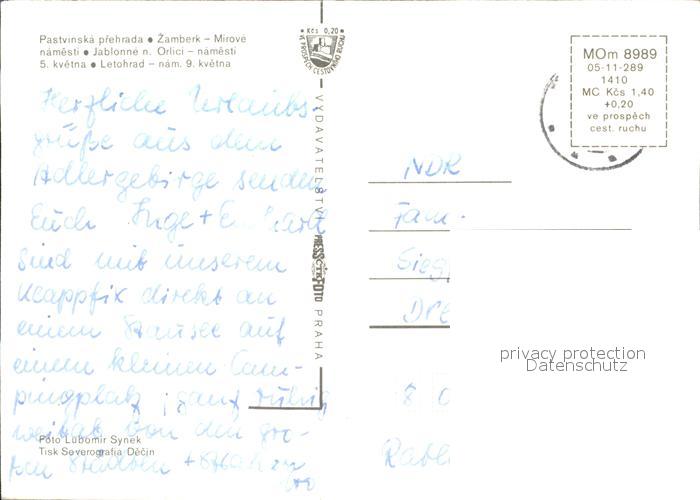 Pastvinská přehrada ● Žamberk – Mírové
náměstí ● Jablonné n. Orlicí – náměstí
5. května ● Letohrad – nám. 9. května
Kčs 0,20
VE PROSPĚCH CESTOVNÍHO RUCHU
MOm 8989
05-11-289
1410
MC Kčs 1,40
+0,20
ve prospěch
cest. ruchu
Herzliche Urlaubs-
grüße aus dem
Adlergebirge senden
Euch Inge +
Sind mit unserem
Klappfix direkt an
einem Stausee auf
einem kleinen Cam-
pingplatz, ganz ruhig
weitab von den gro-
ßen Städten +
VYDAVATELSTVÍ PRESSFOTO PRAHA
NDR
Fam.
Foto Lubomír Synek
Tisk Severografia Děčín
privacy protection
Datenschutz